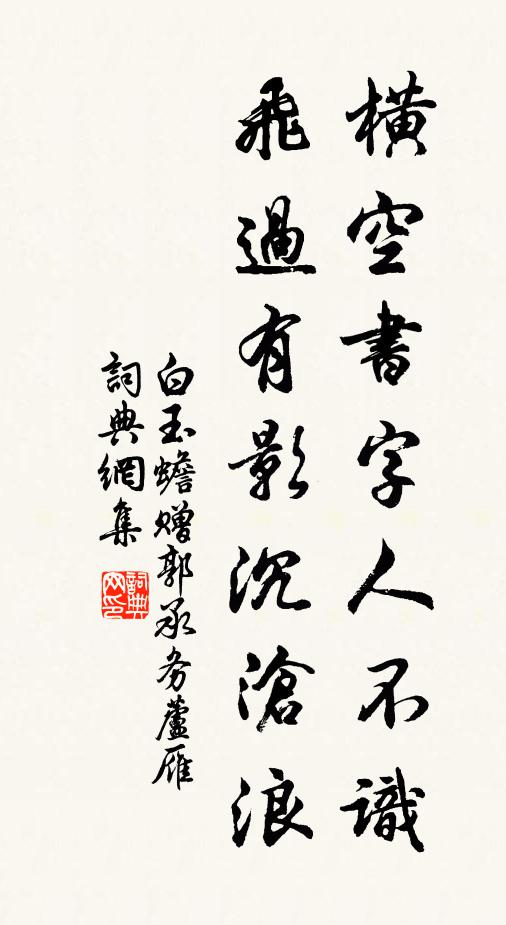 橫空書字人不識
飛過有影沉滄浪
白玉蟾贈郭承务蘆雁
詞典網集
詞典网印